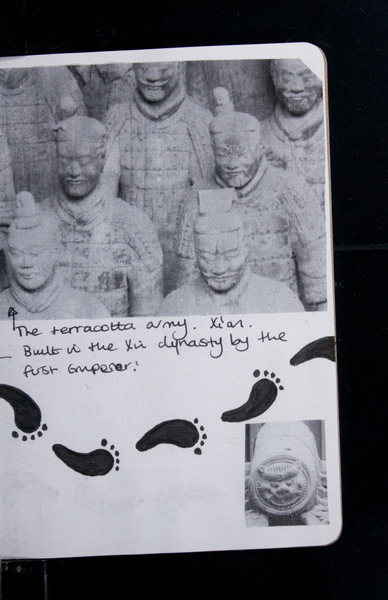 The terracotta army. Xian.
Built in the Xii dynasty by the
first Emperor!